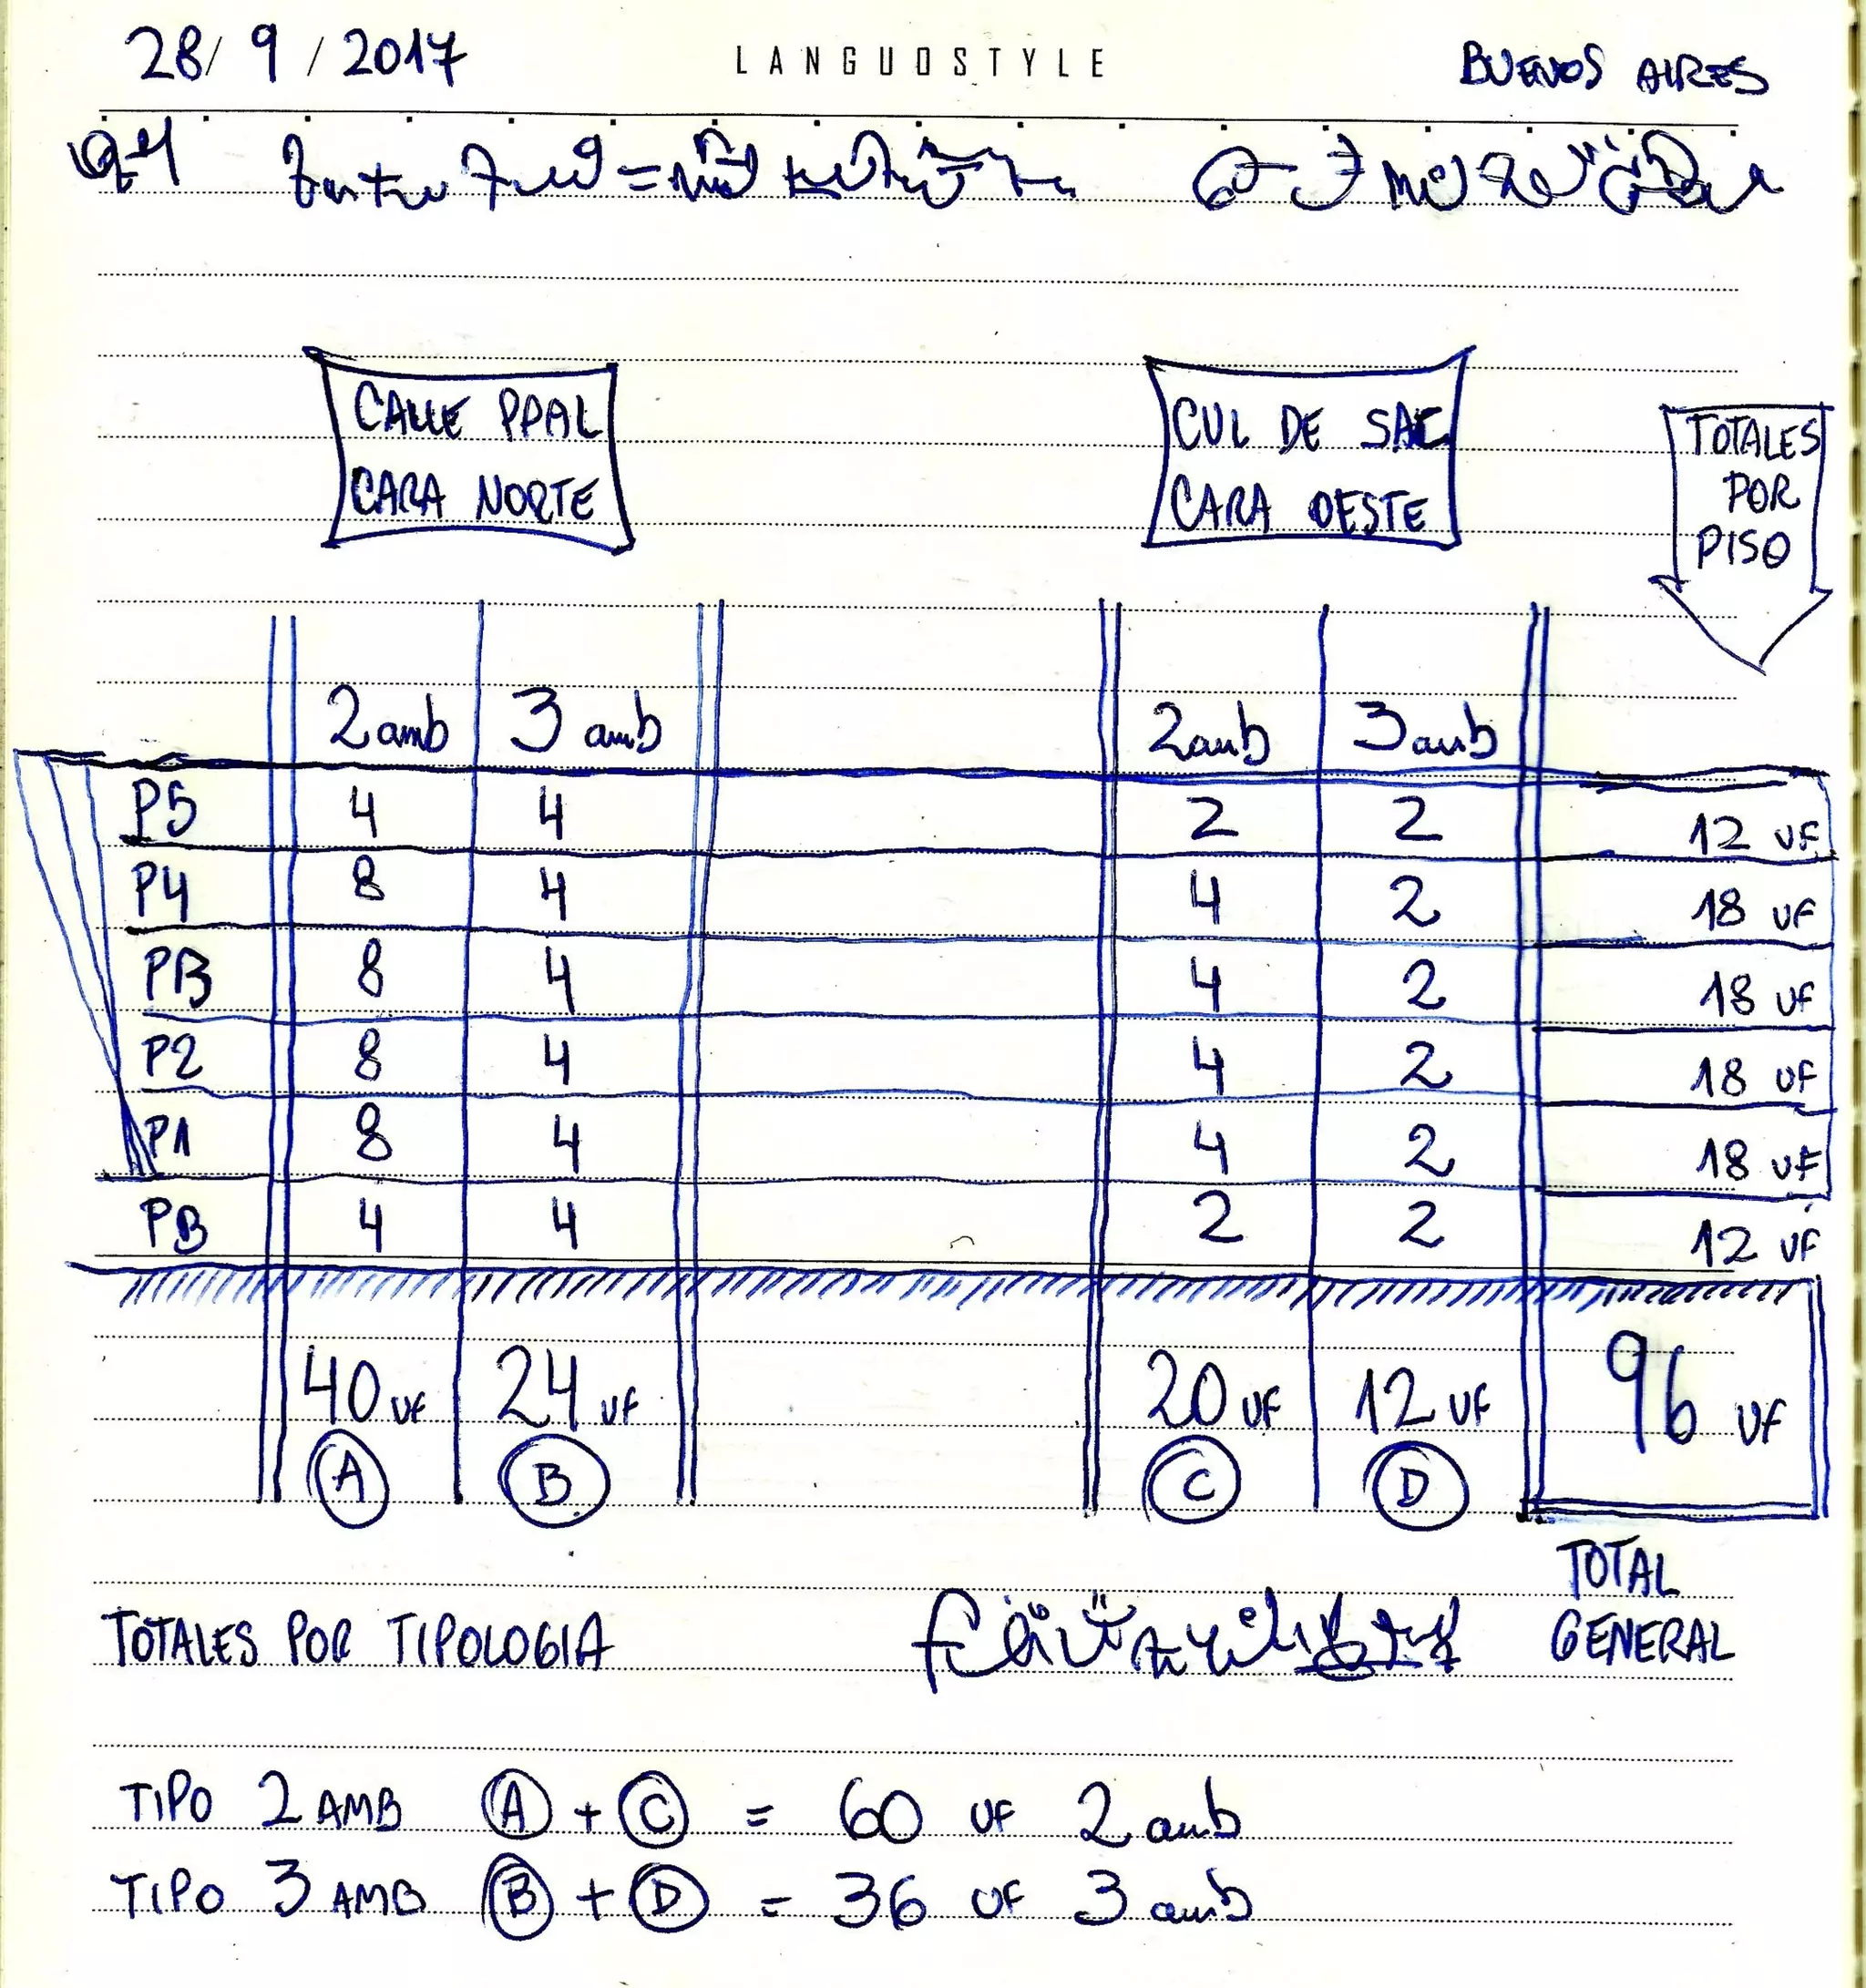 28/9/2017 LANGUOSTYLE BUENOS AIRES
CALLE PPAL
CARA NORTE
CUL DE SAC
CARA OESTE
TOTALES
POR
PISO
2 amb 3 amb 2 amb 3 amb
P5 4 4 2 2 12 UF
P4 8 4 4 2 18 UF
P3 8 4 4 2 18 UF
P2 8 4 4 2 18 UF
P1 8 4 4 2 18 UF
PB 4 4 2 2 12 UF
40 UF 24 UF 20 UF 12 UF 96 UF
A B C D
TOTAL
GENERAL
TOTALES POR TIPOLOGIA
TIPO 2 AMB A + C = 60 UF 2 amb
TIPO 3 AMB B + D = 36 UF 3 amb